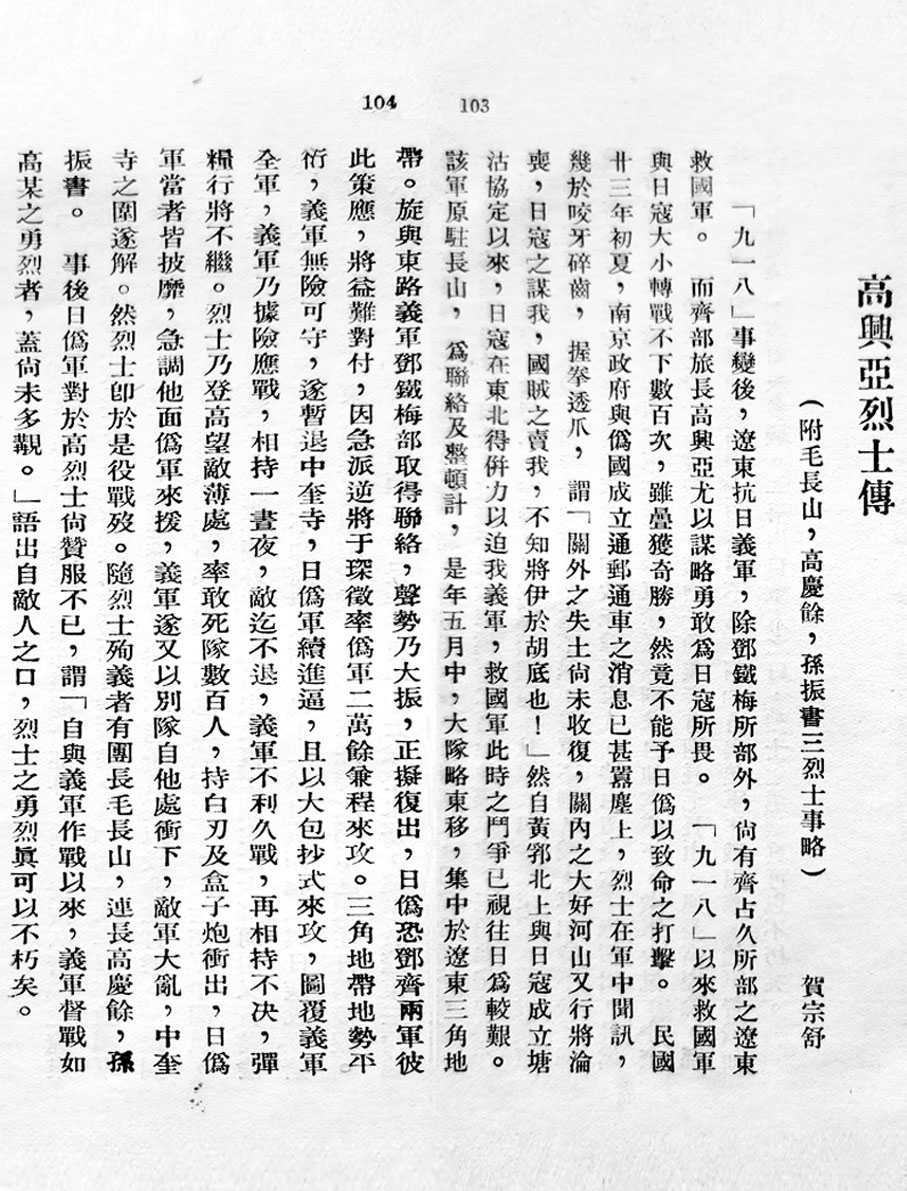 103
高興亞烈士傳
（附毛長山，高慶餘，孫振書三烈士事略）　賀宗舒
「九一八」事變後，遼東抗日義軍，除鄧鐵梅所部外，尙有齊占久所部之遼東
救國軍。　而齊部旅長高興亞尤以謀略勇敢爲日寇所畏。　「九一八」以來救國軍
與日寇大小轉戰不下數百次，雖曡獲奇勝，然竟不能予日僞以致命之打擊。　民國
廿三年初夏，南京政府與僞國成立通郵通車之消息已甚囂塵上，烈士在軍中聞訊，
幾於咬牙碎齒，　握拳透爪，　謂「關外之失土尙未收復，關內之大好河山又行將淪
喪，日寇之謀我，國賊之賣我，不知將伊於胡底也！」然自黃郛北上與日寇成立塘
沽協定以來，日寇在東北得倂力以迫我義軍，救國軍此時之鬥爭已視往日爲較艱。
該軍原駐長山，　爲聯絡及整頓計，　是年五月中，大隊略東移，集中於遼東三角地
104
帶。旋與東路義軍鄧鐵梅部取得聯絡，聲勢乃大振，正擬復出，日僞恐鄧齊兩軍彼
此策應，將益難對付，因急派逆將于琛徵率僞軍二萬餘兼程來攻。三角地帶地勢平
衍，義軍無險可守，遂暫退中奎寺，日僞軍續進逼，且以大包抄式來攻，圖覆義軍
全軍，義軍乃據險應戰，相持一晝夜，敵迄不退，義軍不利久戰，再相持不决，彈
糧行將不繼。烈士乃登高望敵薄處，率敢死隊數百人，持白刃及盒子炮衝出，日僞
軍當者皆披靡，急調他面僞軍來援，義軍遂又以別隊自他處衝下，敵軍大亂，中奎
寺之圍遂解。然烈士卽於是役戰歿。隨烈士殉義者有團長毛長山，連長高慶餘，孫
振書。　事後日僞軍對於高烈士尙贊服不已，謂「自與義軍作戰以來，義軍督戰如
高某之勇烈者，蓋尙未多覯。」語出自敵人之口，烈士之勇烈眞可以不朽矣。